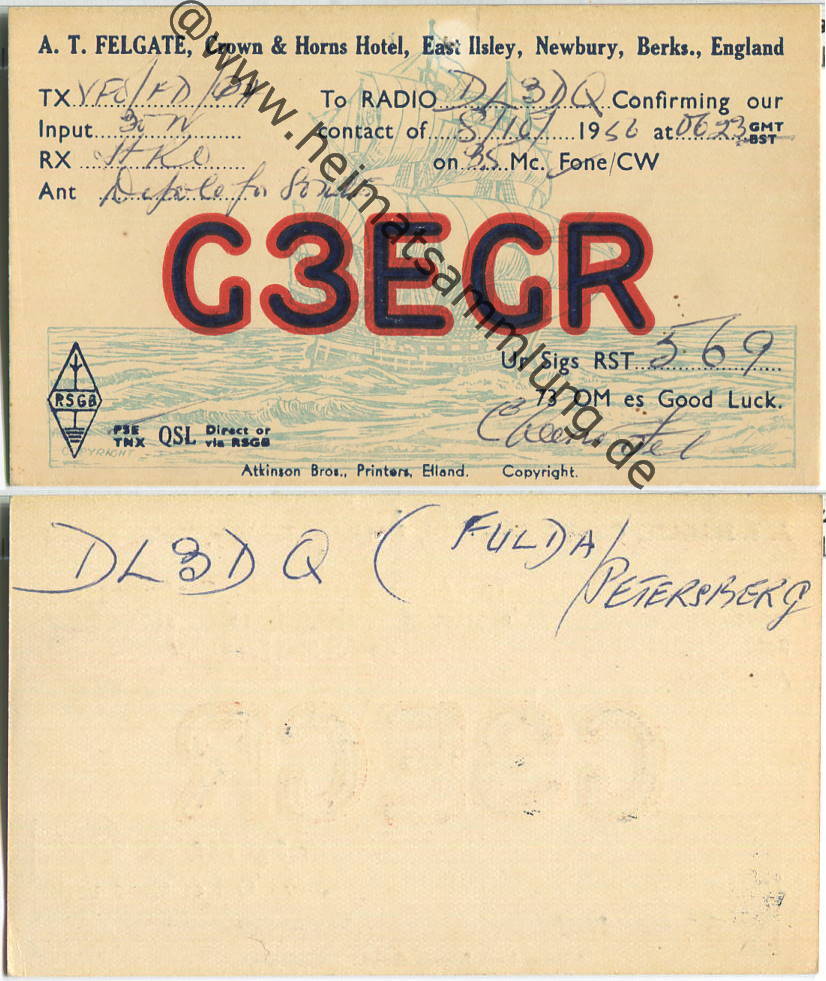 A. T. FELGATE, Crown & Horns Hotel, East Ilsley, Newbury, Berks., England
TX VFO/FD/PA To RADIO DL3DQ Confirming our
Input 30 W contact of 8/10/ 1956 at 0623 GMT BST
RX on 3.5 Mc. Fone/CW
Ant Dipole for 80 mtr
G3EGR
Ur Sigs RST 569
RSGB
73 OM es Good Luck.
PSE TNX QSL Direct or via RSGB
Cheerio Fel
COPYRIGHT
Atkinson Bros., Printers, Elland. Copyright.
@www.heimatsammlung.de
DL3DQ (FULDA/
PETERSBERG